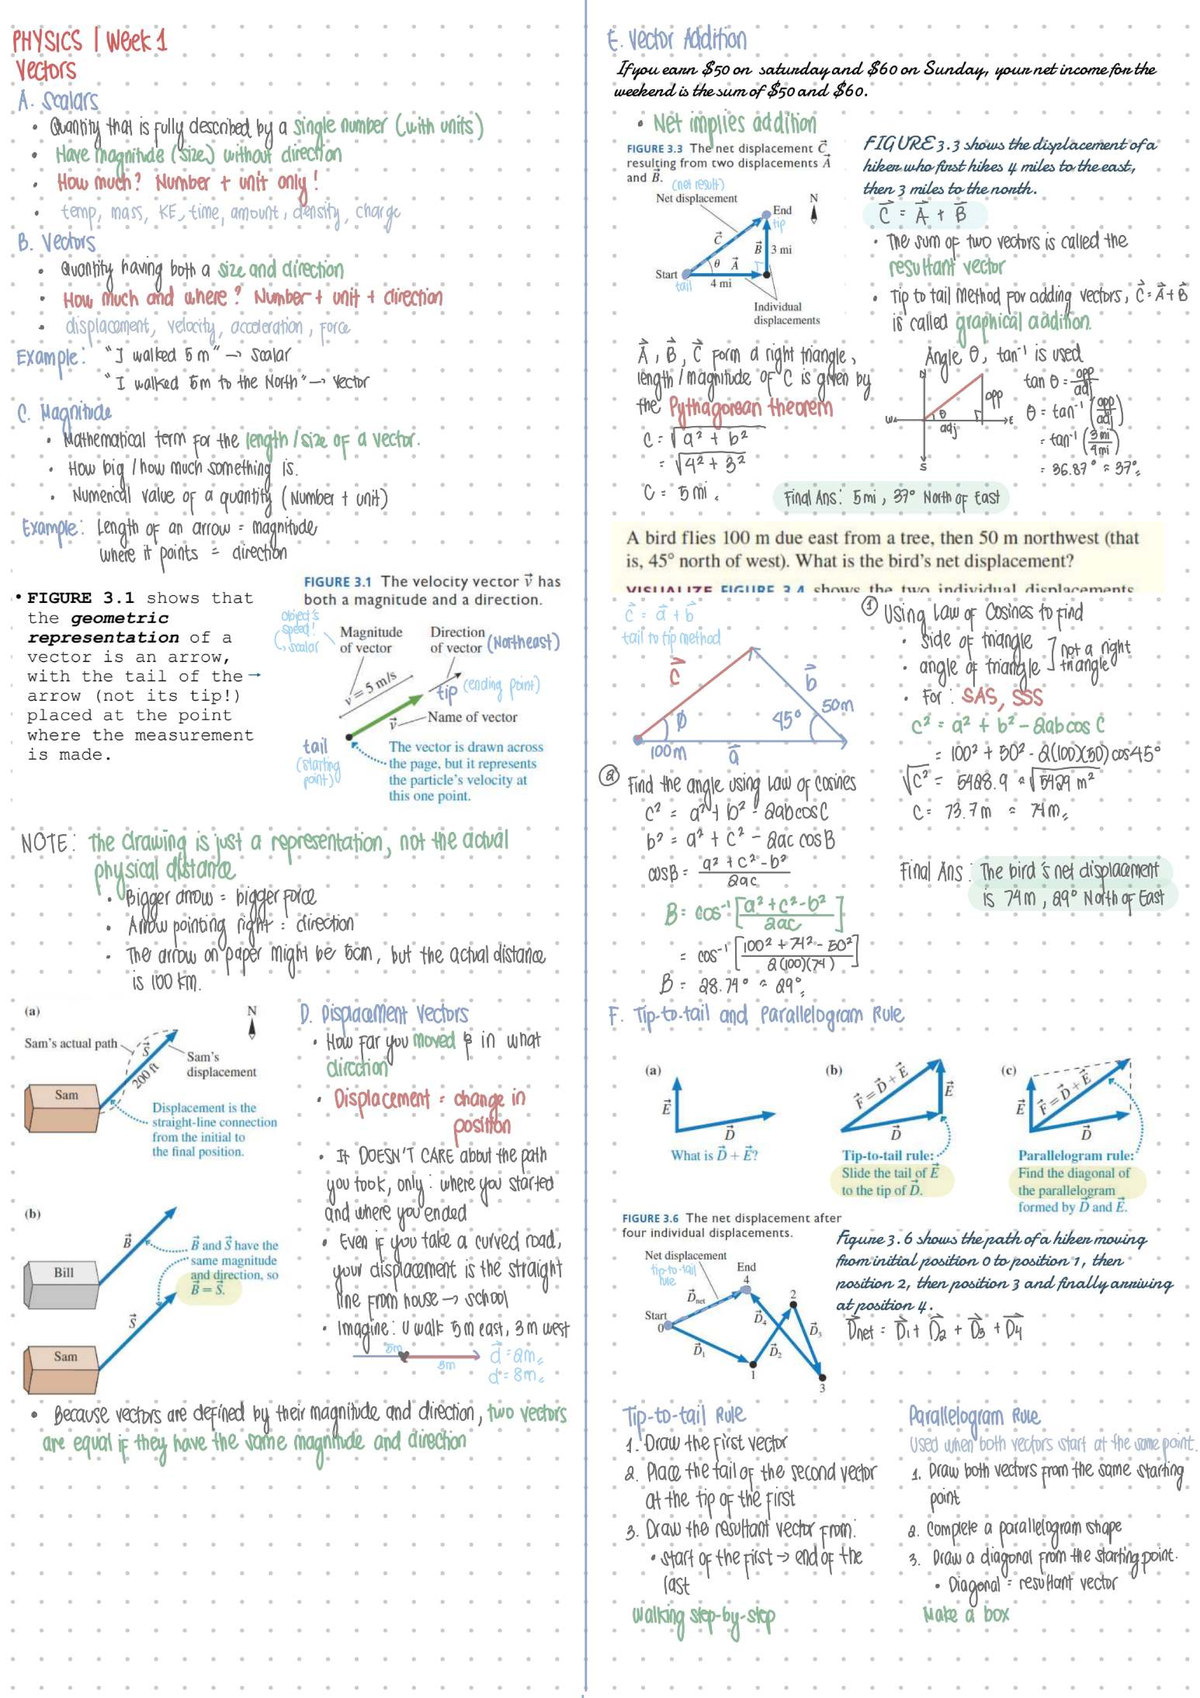 PHYSICS | Week 1
Vectors
A. Scalars
• Quantity that is fully described by a single number (with units)
• Have magnitude (size) without direction
• How much? Number + unit only!
• temp, mass, KE, time, amount, density, charge
B. Vectors
• Quantity having both a size and direction
• How much and where? Number + unit + direction
• displacement, velocity, acceleration, force
Example: "I walked 5 m" → scalar
"I walked 5m to the North" → vector
C. Magnitude
• Mathematical term for the length / size of a vector.
• How big / how much something is.
• Numerical value of a quantity (Number + unit)
Example: Length of an arrow = magnitude
where it points = direction
• FIGURE 3.1 shows that
the geometric
representation of a
vector is an arrow,
with the tail of the →
arrow (not its tip!)
placed at the point
where the measurement
is made.
FIGURE 3.1 The velocity vector v⃗ has
both a magnitude and a direction.
object's
speed!
↳ scalar
Magnitude
of vector
Direction
of vector (Northeast)
v = 5 m/s
tip (ending point)
v⃗
Name of vector
tail
(starting
point)
The vector is drawn across
the page, but it represents
the particle's velocity at
this one point.
NOTE: the drawing is just a representation, not the actual
physical distance
• Bigger arrow = bigger force
• Arrow pointing right = direction
• The arrow on paper might be 5cm, but the actual distance
is 100 km.
(a)
N
Sam's actual path
S⃗
200 ft
Sam's
displacement
Sam
Displacement is the
straight-line connection
from the initial to
the final position.
(b)
B⃗
Bill
B⃗ and S⃗ have the
same magnitude
and direction, so
B⃗ = S⃗.
S⃗
Sam
D. Displacement Vectors
• How far you moved & in what
direction
• Displacement = change in
position
• It DOESN'T CARE about the path
you took, only: where you started
and where you ended
• Even if you take a curved road,
your displacement is the straight
line from house → school
• Imagine: U walk 5m east, 3m west
3m
d⃗ = 2m
d = 8m
• Because vectors are defined by their magnitude and direction, two vectors
are equal if they have the same magnitude and direction
E. Vector Addition
If you earn $50 on saturday and $60 on Sunday, your net income for the
weekend is the sum of $50 and $60.
• Net implies addition
FIGURE 3.3 The net displacement C⃗
resulting from two displacements A⃗
and B⃗.
(net result)
Net displacement
End
tip
N
C⃗
B⃗ 3 mi
θ A⃗
Start
tail
4 mi
Individual
displacements
FIGURE 3.3 shows the displacement of a
hiker who first hikes 4 miles to the east,
then 3 miles to the north.
C⃗ = A⃗ + B⃗
• The sum of two vectors is called the
resultant vector
• Tip to tail method for adding vectors, C⃗ = A⃗ + B⃗
is called graphical addition.
A⃗, B⃗, C⃗ form a right triangle,
length / magnitude of C is given by
the Pythagorean theorem
C = √a² + b²
= √4² + 3²
C = 5 mi
Angle θ, tan⁻¹ is used
N
W
E
S
θ
adj
opp
tan θ = opp/adj
θ = tan⁻¹ (opp/adj)
= tan⁻¹ (3 mi/4 mi)
= 36.87° ≈ 37°
Final Ans: 5 mi, 37° North of East
A bird flies 100 m due east from a tree, then 50 m northwest (that
is, 45° north of west). What is the bird's net displacement?
VISUALIZE FIGURE 3.4 shows the two individual displacements
c⃗ = a⃗ + b⃗
tail to tip method
c⃗
b⃗
50m
45°
ø
100m
a⃗
① Using Law of Cosines to find
• side of triangle
• angle of triangle
not a right
triangle
• For: SAS, SSS
c² = a² + b² - 2ab cos C
= 100² + 50² - 2(100)(50) cos 45°
√c² = 5428.9 ≈ √5429 m²
C = 73.7m ≈ 74m
② Find the angle using Law of Cosines
c² = a² + b² - 2ab cos C
b² = a² + c² - 2ac cos B
cos B = a² + c² - b² / 2ac
B = cos⁻¹ [a² + c² - b² / 2ac]
= cos⁻¹ [100² + 74² - 50² / 2(100)(74)]
B = 28.79° ≈ 29°
Final Ans: The bird's net displacement
is 74m, 29° North of East
F. Tip-to-tail and Parallelogram Rule
(a)
E⃗
D⃗
What is D⃗ + E⃗?
(b)
F⃗ = D⃗ + E⃗
E⃗
D⃗
Tip-to-tail rule:
Slide the tail of E⃗
to the tip of D⃗.
(c)
E⃗
F⃗ = D⃗ + E⃗
D⃗
Parallelogram rule:
Find the diagonal of
the parallelogram
formed by D⃗ and E⃗.
FIGURE 3.6 The net displacement after
four individual displacements.
Net displacement
tip-to-tail
rule
End
4
D⃗net
2
Start
0
D⃗₄
D⃗₃
D⃗₁
D⃗₂
1
3
Figure 3.6 shows the path of a hiker moving
from initial position 0 to position 1, then
position 2, then position 3 and finally arriving
at position 4.
D⃗net = D⃗₁ + D⃗₂ + D⃗₃ + D⃗₄
Tip-to-tail Rule
1. Draw the first vector
2. Place the tail of the second vector
at the tip of the first
3. Draw the resultant vector from:
• start of the first → end of the
last
walking step-by-step
Parallelogram Rule
Used when both vectors start at the same point.
1. Draw both vectors from the same starting
point
2. Complete a parallelogram shape
3. Draw a diagonal from the starting point.
• Diagonal = resultant vector
Make a box